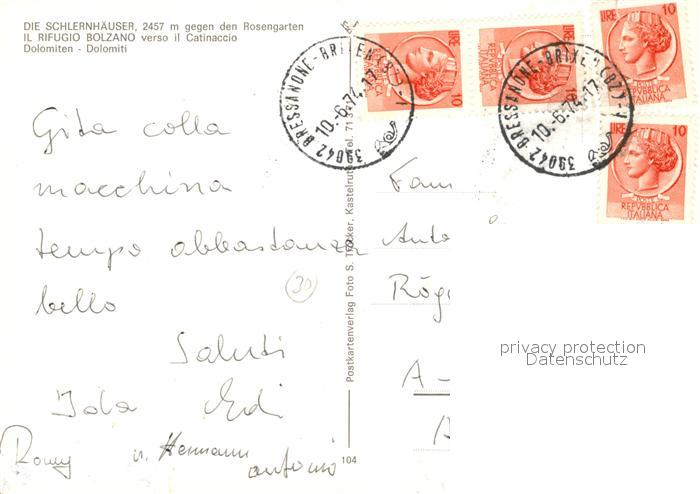 DIE SCHLERNHÄUSER, 2457 m gegen den Rosengarten
IL RIFUGIO BOLZANO verso il Catinaccio
Dolomiten - Dolomiti
Gita colla
macchina
tempo abbastanza
bello
Saluti
Ida Edi
Romy u. Hermann
antonio
30
104
Postkartenverlag Foto S. Kastelruth Tel. 713
39042 BRESSANONE-BRIXEN (BZ)
10.-6.74.17
LIRE 10
POSTE
REPVBBLICA
ITALIANA
LIRE 10
REPVBBLICA
39042 BRESSANONE-BRIXEN (BZ)
10.-6.74.17
LIRE 10
POSTE
REPVBBLICA
ITALIANA
LIRE 10
POSTE
REPVBBLICA
ITALIANA
Fam
Anto
Rög
A-
A
privacy protection
Datenschutz